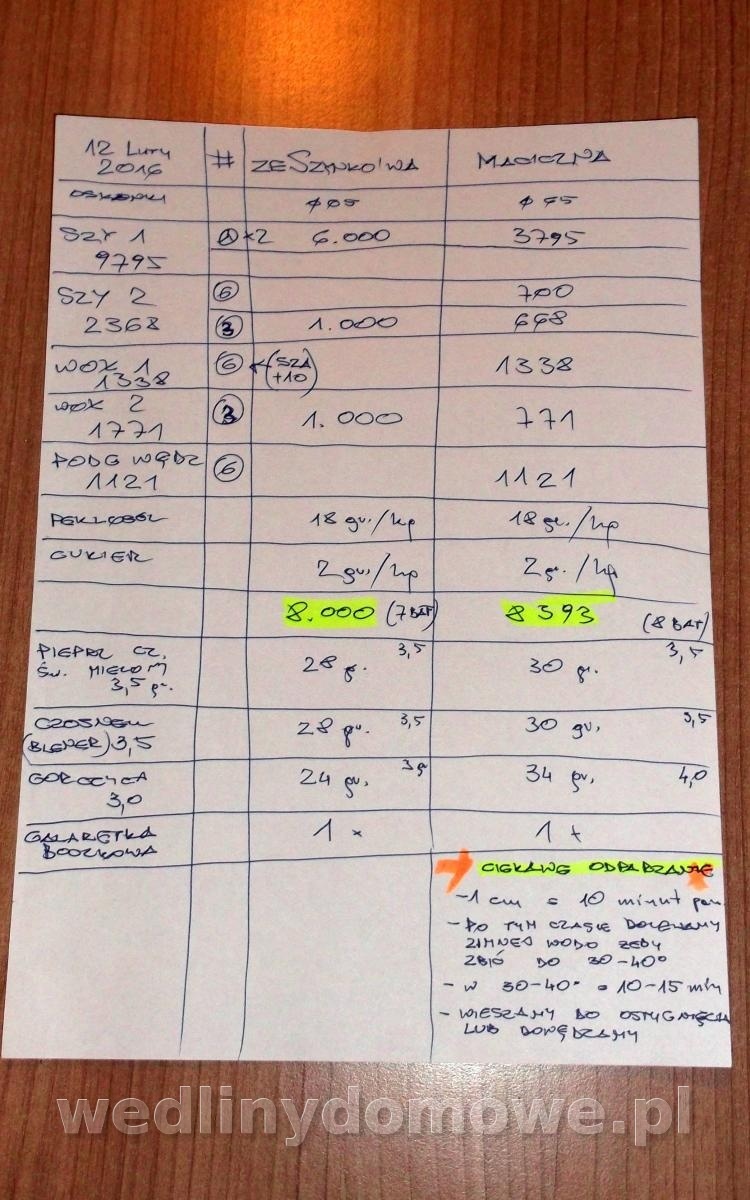 12 Luty # ZESZYNKO'WA MAGICZNA
2016
OSKÓRKI ϕ 65 ϕ 65
SZY 1 ×2 6.000 3795
9795
SZY 2 6 700
2368 3 1.000 668
WOŁ 1 6 ← (SZA +10) 1338
1338
WOŁ 2 3 1.000 771
1771
PODG WĘDZ 6 1121
1121
PEKLOSÓL 18 gr./kg 18 gr./kg
CUKIER 2 gr./kg 2 gr./kg
8.000 (7 BAT) 8 393 (8 BAT)
PIEPRZ CZ. 28 g. 3,5 30 gr. 3,5
ŚW. MIELON
3,5 gr.
CZOSNEK 28 gr. 3,5 30 gr. 3,5
(BLENDER) 3,5
GORCZYCA 24 gr. 34 gr. 4,0
3,0
GALARETKA 1 × 1 ×
BOCZKOWA
→ CIEKAWE ODPARZANIE
- 1 cm = 10 minut
- PO TYM CZASIE DOLEWAMY
ZIMNEJ WODO ŻEBY
ZBIĆ DO 30-40°
- W 30-40° = 10-15 min
- WIESZAMY DO OSTYGNIĘCIA
LUB DOWĘDZAMY
wedlinydomowe.pl